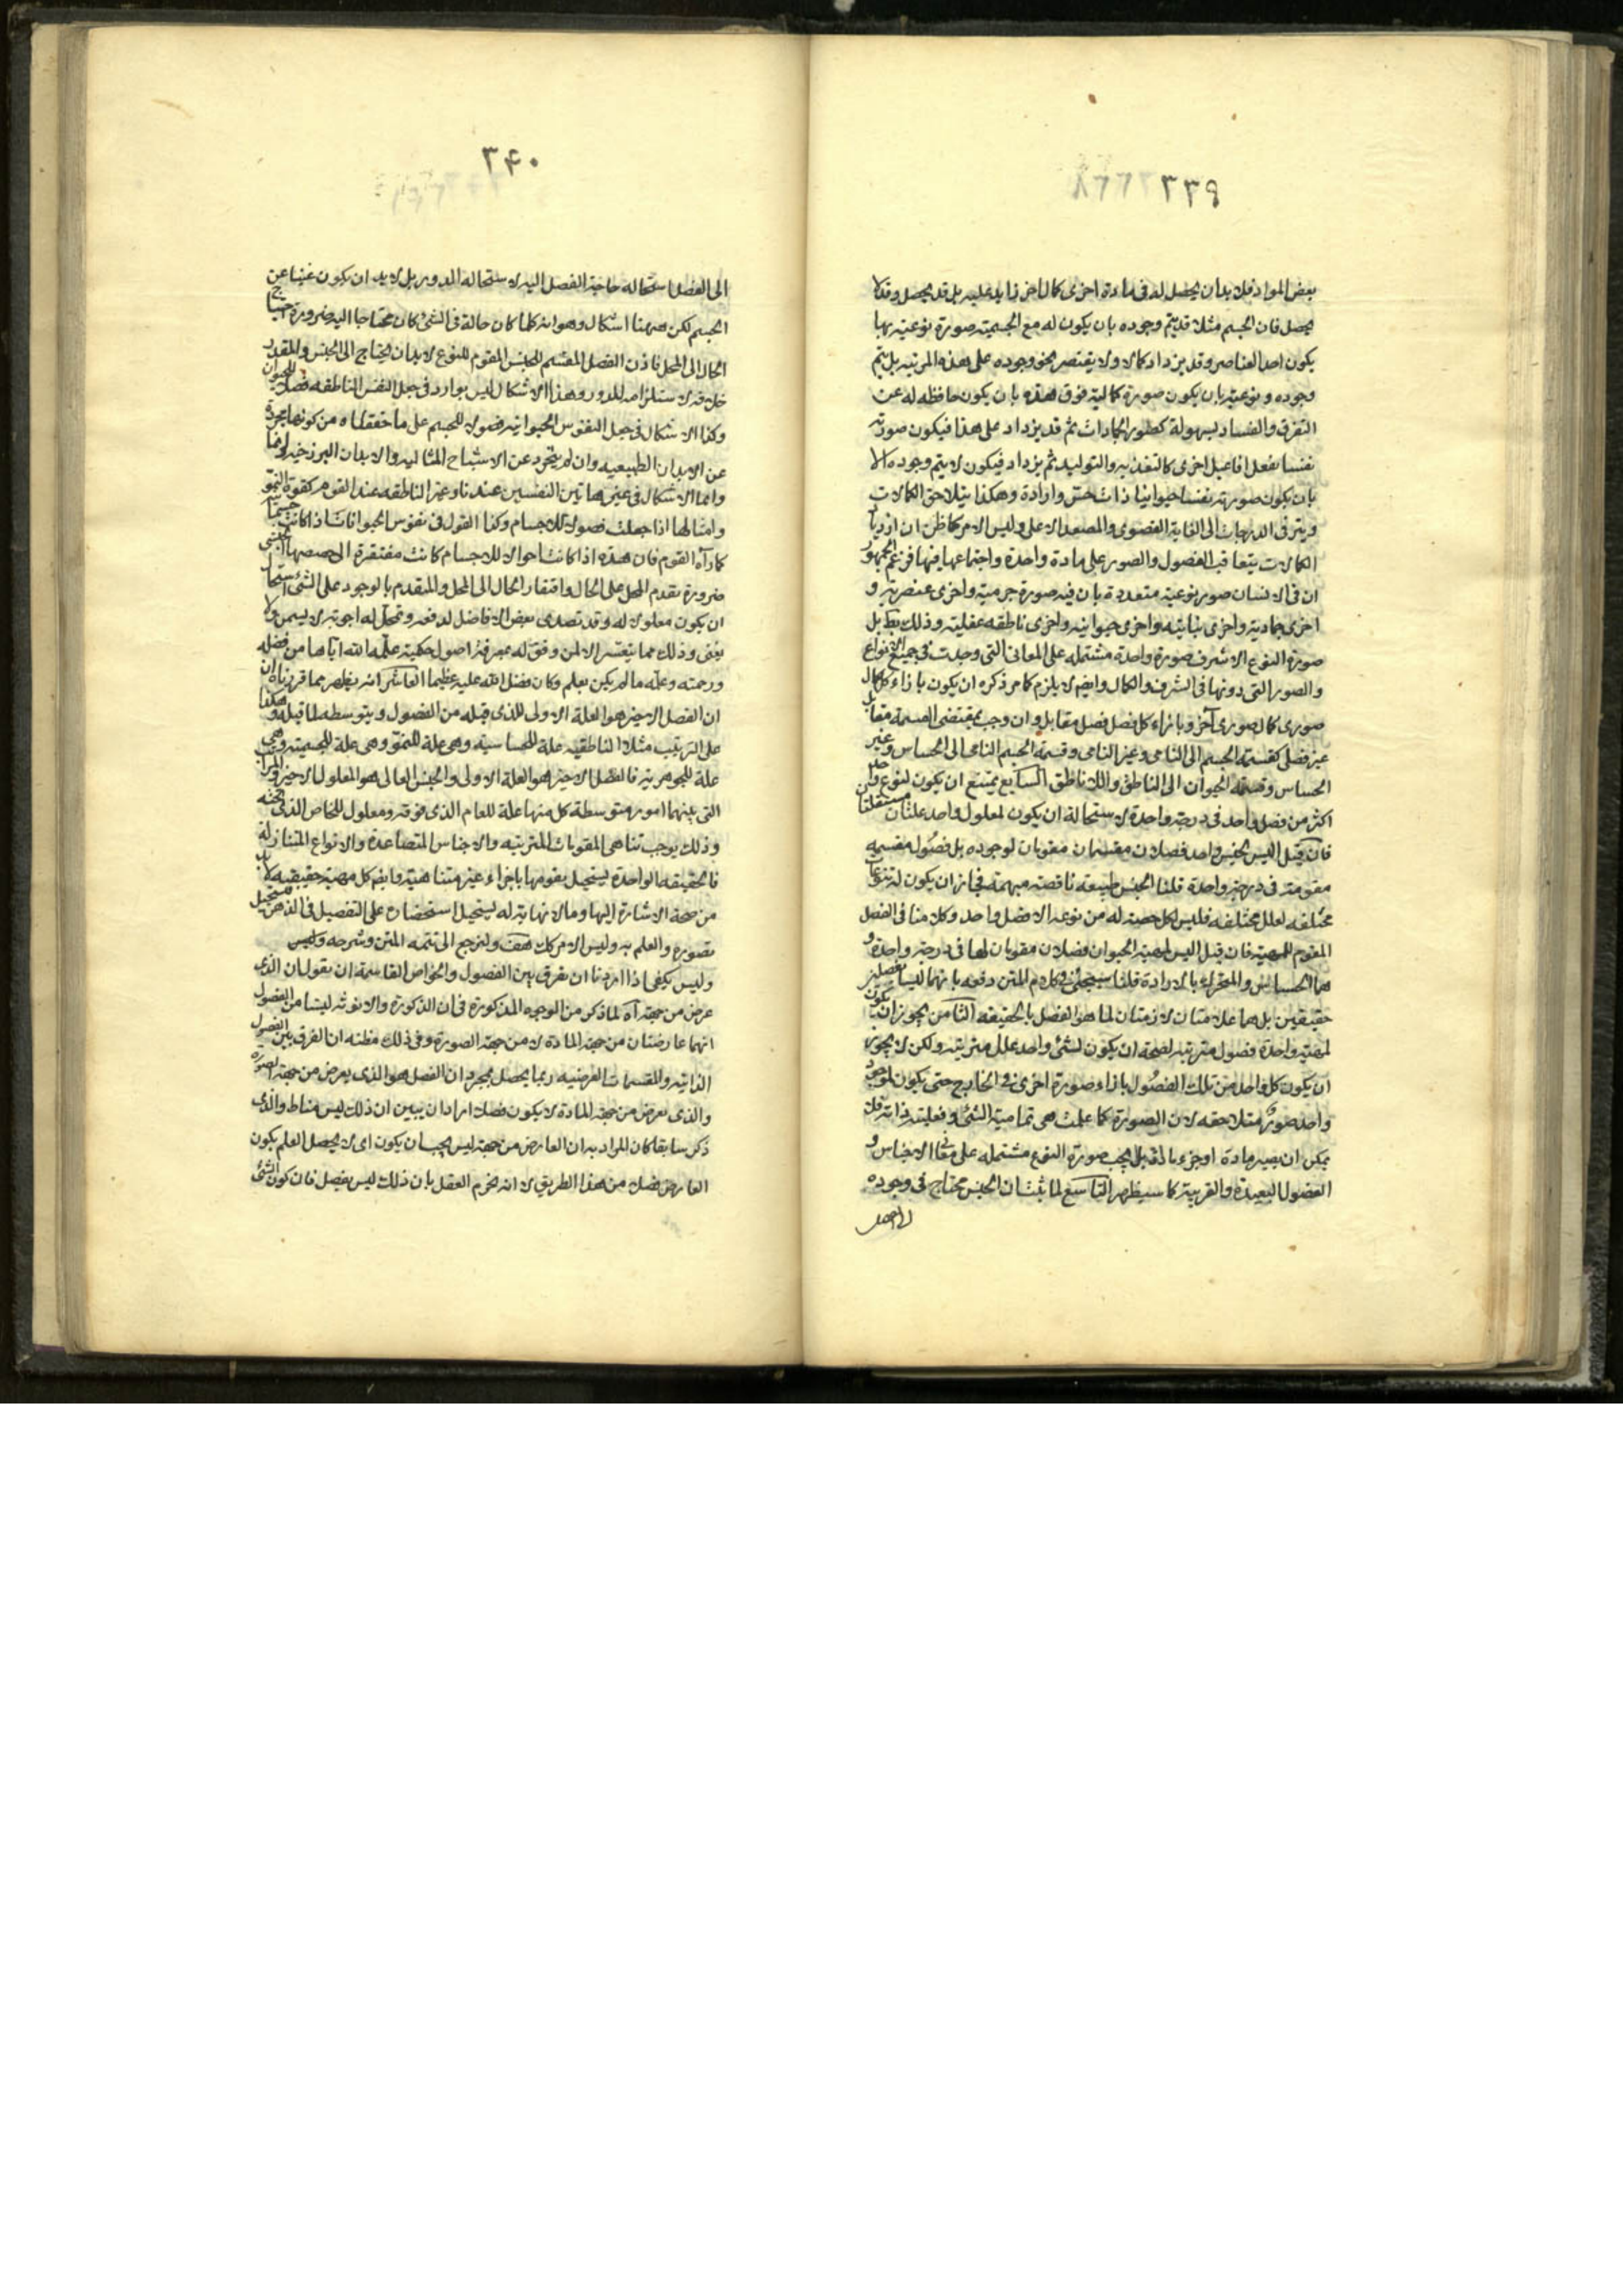 ٣٣٩
بعض المواد فلا بد ان يحصل له فى مادة اخرى كمال اخر زايد عليه بل قد يحصل وقد لا
يحصل فان الجسم مثلا قد يتم وجوده بان يكون له مع الجسمية صورة نوعية بها
يكون احد العناصر وقد يزداد كمالا ولا يقتصر نحو وجوده على هذه المرتبه بل يتم
وجوده ونوعيته بان يكون صورة كمالية فوق هذه بان يكون حافظه له عن
التفرق والفساد بسهولة كصور الجمادات ثم قد يزداد على هذا فيكون صورته
نفسا يفعل افاعيل اخرى كالتغذيه والتوليد ثم يزداد فيكون لا يتم وجوده الا
بان يكون صورته نفسا حيوانيا ذات حس وارادة وهكذا يتلاحق الكمالات
ويترقى الدرجات الى الغاية القصوى والمصعد الاعلى وليس الامر كما ظن ان ازدياد
الكمالات بتعاقب الفصول والصور على مادة واحدة واجتماعها فيها فزعم الجمهور
ان فى الانسان صور نوعية متعددة بان فيه صورة جرمية واخرى عنصرية و
اخرى جمادية واخرى نباتيه واخرى حيوانيه واخرى ناطقه عقلية وذلك بط بل
صورة النوع الاشرف صورة واحدة مشتمله على المعانى التى وجدت فى جميع الانواع
والصور التى دونها فى الشرف والكمال وايضم لا يلزم كما مر ذكره ان يكون بازاء كل كمال
صورى كمال صورى آخر وبازاء كل فصل فصل مقابل وان وجب بمقتضى القسمة مقابل
غير فصلى كقسمة الجسم الى النامى وغير النامى وقسمة الجسم النامى الى الحساس وغير
الحساس وقسمة الحيوان الى الناطق واللا ناطق السابع يمتنع ان يكون لنوع واحد
اكثر من فصل واحد فى درجة واحدة لاستحالة ان يكون لمعلول واحد علتان مستقلتان
فان قيل اليس لجنس واحد فصلان مقسمان مقومان لوجوده بل فصول مقسمه
مقومة فى درجة واحدة قلنا الجنس طبيعه ناقصة مبهمة فجاز ان يكون له تنوعات
مختلفه لعلل مختلفه فليس لكل حصة له من نوعه الا فصل واحد وكلامنا فى الفصل
المقوم للمهية فان قيل اليس لمهية الحيوان فصلان مقومان لها فى درجة واحدة و
هما الحساس والمتحرك بالارادة قلنا سيجئ فى كلام المتن دفعه بانهما ليسا بفصلين
حقيقيين بل هما علامتان لازمتان لما هو الفصل بالحقيقه الثامن يجوز ان يكون
لمهية واحدة فصول مترتبه لصحة ان يكون لشئ واحد علل مترتبه ولكن لا يجوز
ان يكون كل واحد من تلك الفصول بازاء صورة اخرى فى الخارج حتى يكون لموجود
واحد صور متلاحقه لان الصورة كما علمت هى تمامية الشئ وفعليته بذاته فلا
يمكن ان يصير مادة او جزء مادة بل يجب صورة النوع مشتمله على معانى الاجناس و
الفصول البعيدة والقريبة كما سيظهر التاسع لما ثبت ان الجنس محتاج فى وجوده
٣٤٠
الى الفصل استحاله حاجة الفصل اليه لاستحاله الدور بل لا بد ان يكون غنيا عن
الجسم لكن ههنا اشكال وهو انه كلما كان حالة فى الشئ كان محتاجا اليه ضرورة احتياج
الحال الى المحل فاذن الفصل المقسم للجنس المقوم للنوع لا بد ان يحتاج الى الجنس والمقدر
خلافه لاستلزامه للدور وهذا الاشكال ليس بوارد فى جعل النفس الناطقه فصلا للحيوان
وكذا الاشكال فى جعل النفوس الحيوانيه فصولا للجسم على ما حققناه من كونها مجردة
عن الابدان الطبيعيه وان لم يتجرد عن الاشباح المثاليه والابدان البرزخيه
وانما الاشكال فى غير هاتين النفسين عندنا وغير الناطقه عند القوم كقوة النمو
وامثالها اذا جعلت فصولا للاجسام وكذا القول فى نفوس الحيوانات اذا كانت
كما رآه القوم فان هذه اذا كانت احوالا للاجسام كانت مفتقرة الى حصصها
ضرورة تقدم المحل على الحال وافتقار الحال الى المحل والمتقدم بالوجود على الشئ استحال
ان يكون معلولا له وقد تصدى بعض الافاضل لدفعه وتمحل له اجوبة لا يسمن ولا
يغنى وذلك مما يتعسر الا لمن وفق له بمعرفة اصول حكمية علمه الله اياها من فضله
ورحمته وعلمه ما لم يكن يعلم وكان فضل الله عليه عظيما العاشر انه يظهر مما قررناه ان
ان الفصل الاخير هو العلة الاولى للذى قبله من الفصول وبتوسطه لما قبله وهكذا
على الترتيب مثلا الناطقيه علة للحساسية وهى علة للنمو وهى علة للجسمية وهى
علة للجوهرية فالفصل الاخير هو العلة الاولى والجنس العالى هو المعلول الاخير والمراتب
التى بينهما امور متوسطة كل منها علة للعام الذى فوقه ومعلول للخاص الذى تحته
وذلك يوجب تناهى المقومات المترتبه والاجناس المتصاعدة والانواع المتنازلة
فالحقيقه الواحدة يستحيل تقومها باجزاء غير متناهية وايضم كل مهية حقيقيه لا بد
من صحة الاشارة اليها وما لا نهاية له يستحيل استحضاره على التفصيل فى الذهن فيستحيل
تصوره والعلم به وليس الامر كك هف ولنرجع الى تتمه المتن وشرحه وليس
وليس يكفى اذا اردنا ان نفرق بين الفصول والخواص القاسمة ان نقول ان الذى
عرض من جهة آه لما ذكر من الوجوه المذكورة فى ان الذكورة والانوثه ليستا من الفصول
انهما عارضتان من جهة المادة لا من جهة الصورة وفى ذلك مظنه ان الفرق بين الفصول
الذاتيه والمقسمات العرضيه ربما يحصل بمجرد ان الفصل هو الذى يعرض من جهة الصورة
والذى يعرض من جهة المادة لا يكون فصلا اراد ان يبين ان ذلك ليس مناط والذى
ذكر سابقا كان المراد به ان العارض من جهة ليس يجب ان يكون اى لا يحصل العلم بكون
العارض فصلا من هذا الطريق لا انه يخرم العقل بان ذلك ليس بفصل فان كون الشئ